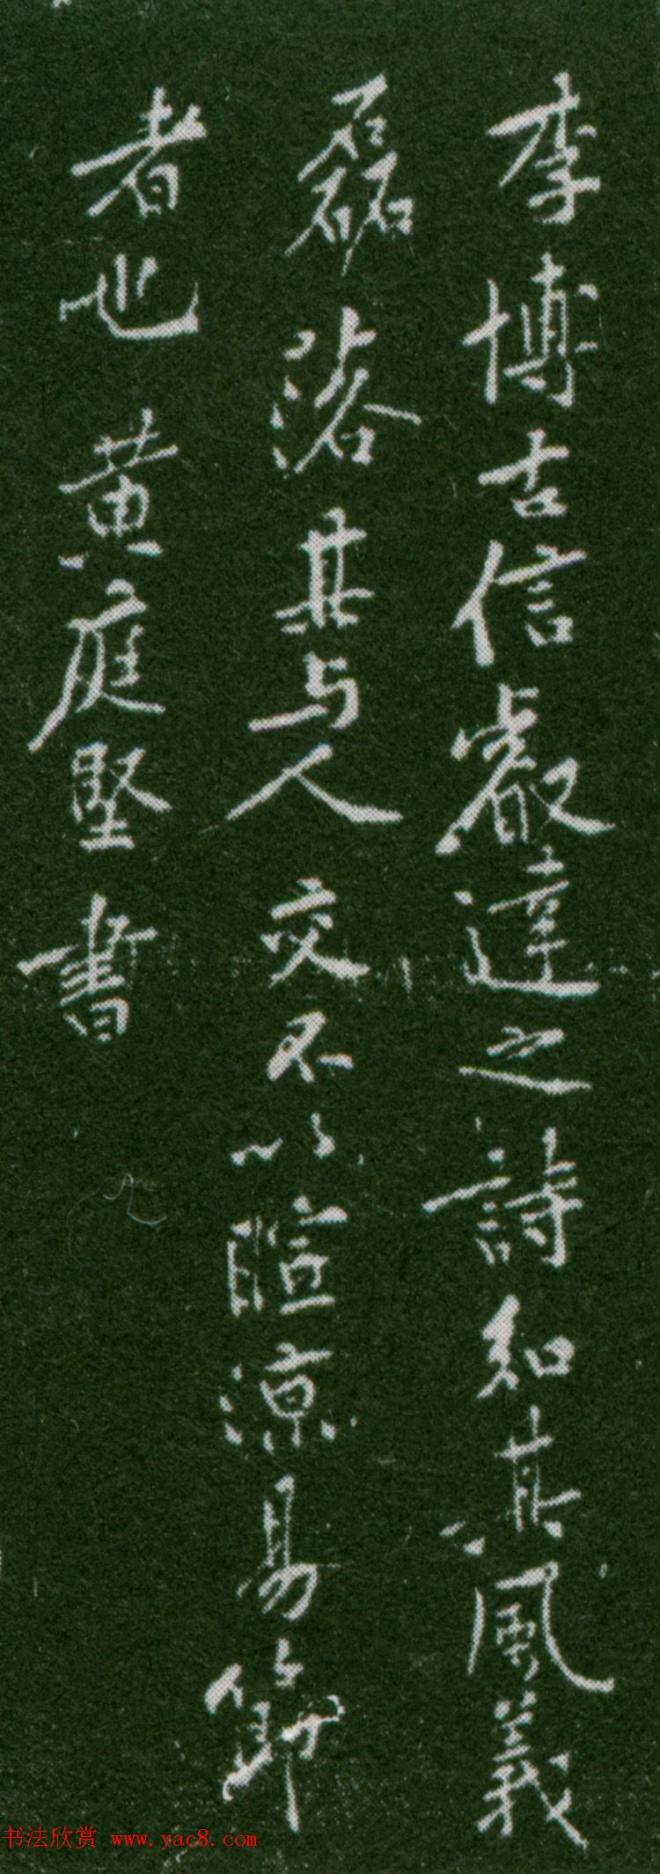 李博古信叡達之詩知其風義
磊落其与人交不以暄涼易節
者也 黄庭堅書
书法欣赏 www.yac8.com